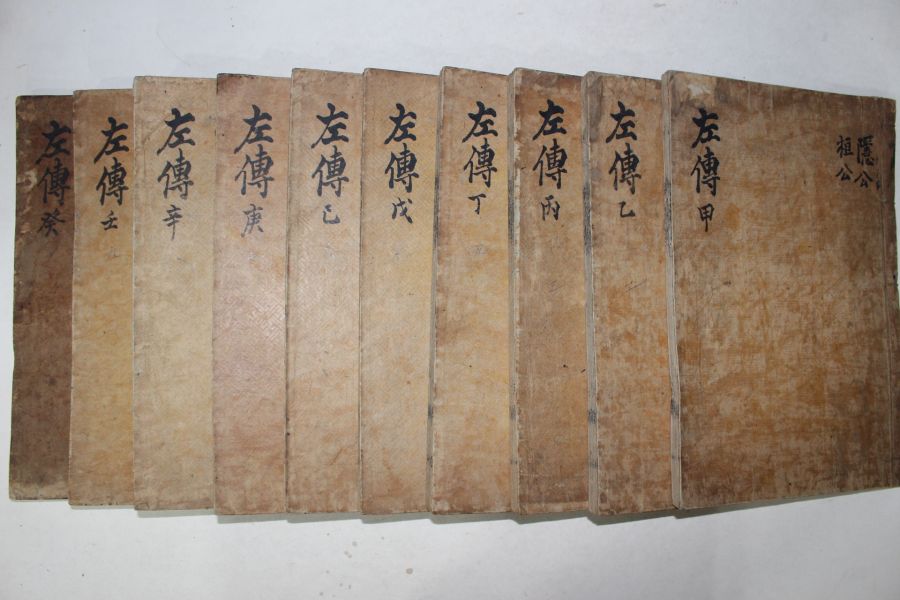 隱公
桓公
左傳 甲
左傳 乙
左傳 丙
左傳 丁
左傳 戊
左傳 己
左傳 庚
左傳 辛
左傳 壬
左傳 癸